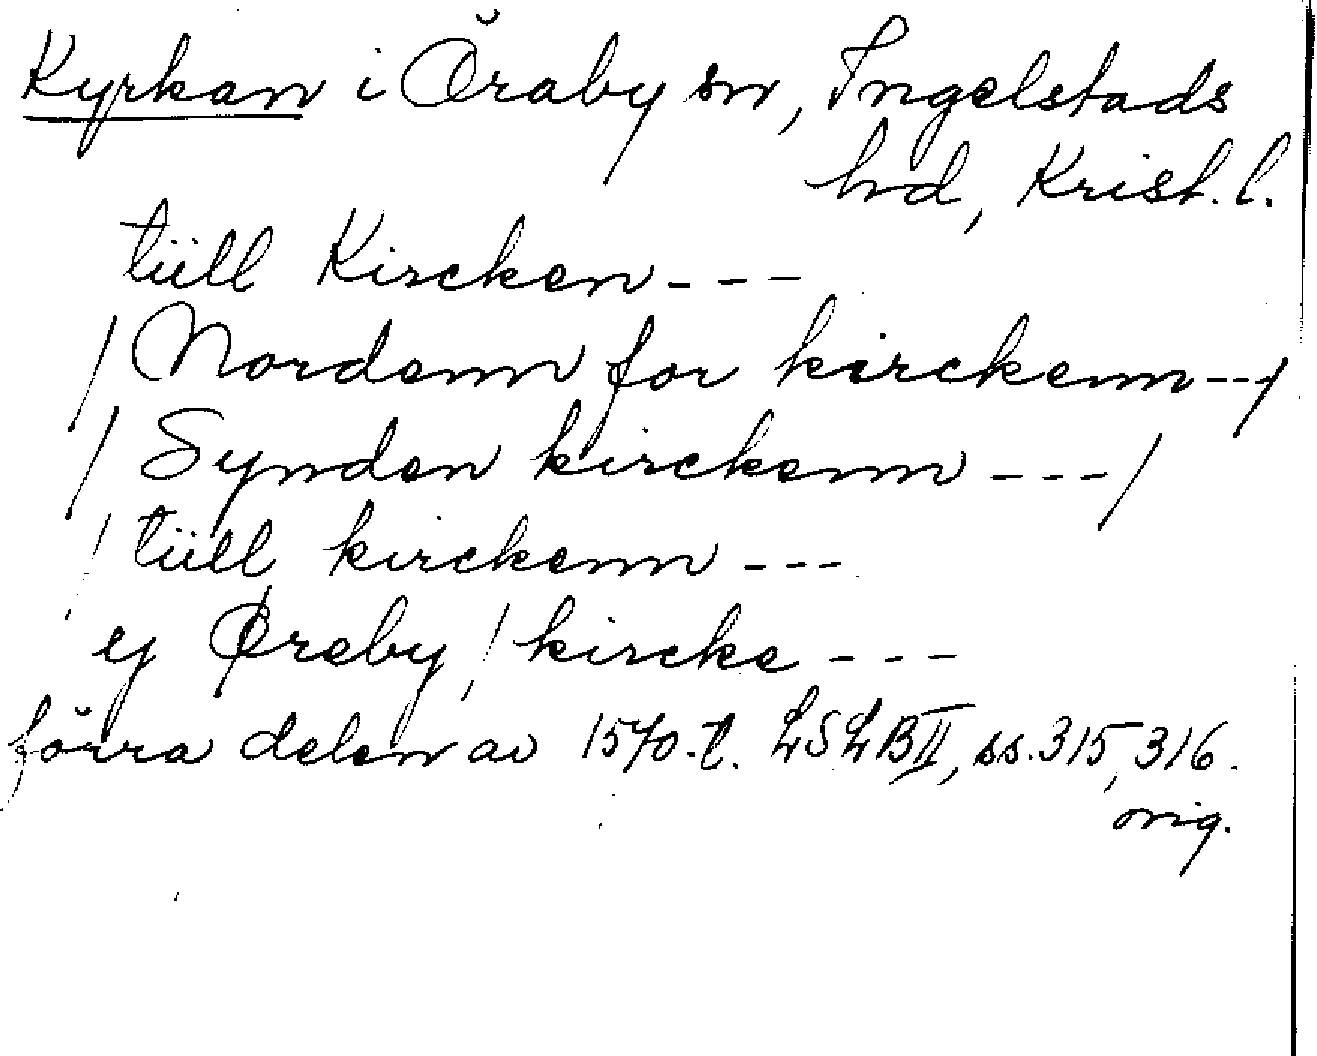 Kyrkan i Öraby sn, Ingelstads
hd, Krist. l.
tiill Kircken - - -
/ Nordenn for kirckenn - - /
/ Synden kirckenn - - - /
/ tiill kirckenn - - -
ey Øreby / kircke - - -
förra delen av 1570-t. LSLB II, ss. 315, 316.
orig.